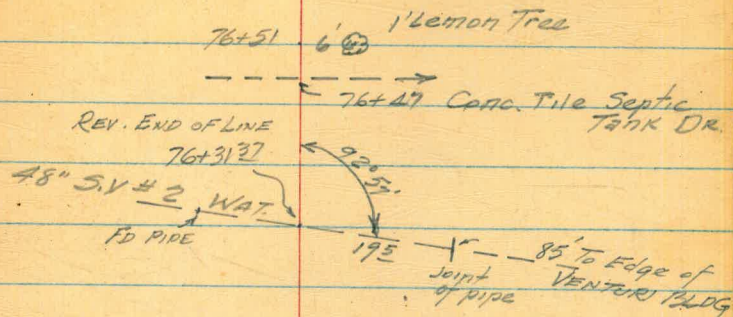 76+51 6' 1' Lemon Tree
76+47 Conc. Tile Septic
Tank Dr.
REV. END OF LINE
76+31 37
92° 57'
48" S.V # 2 WAT.
FD PIPE
19 5
Joint
of pipe
85' To Edge of
VENTURI BLDG